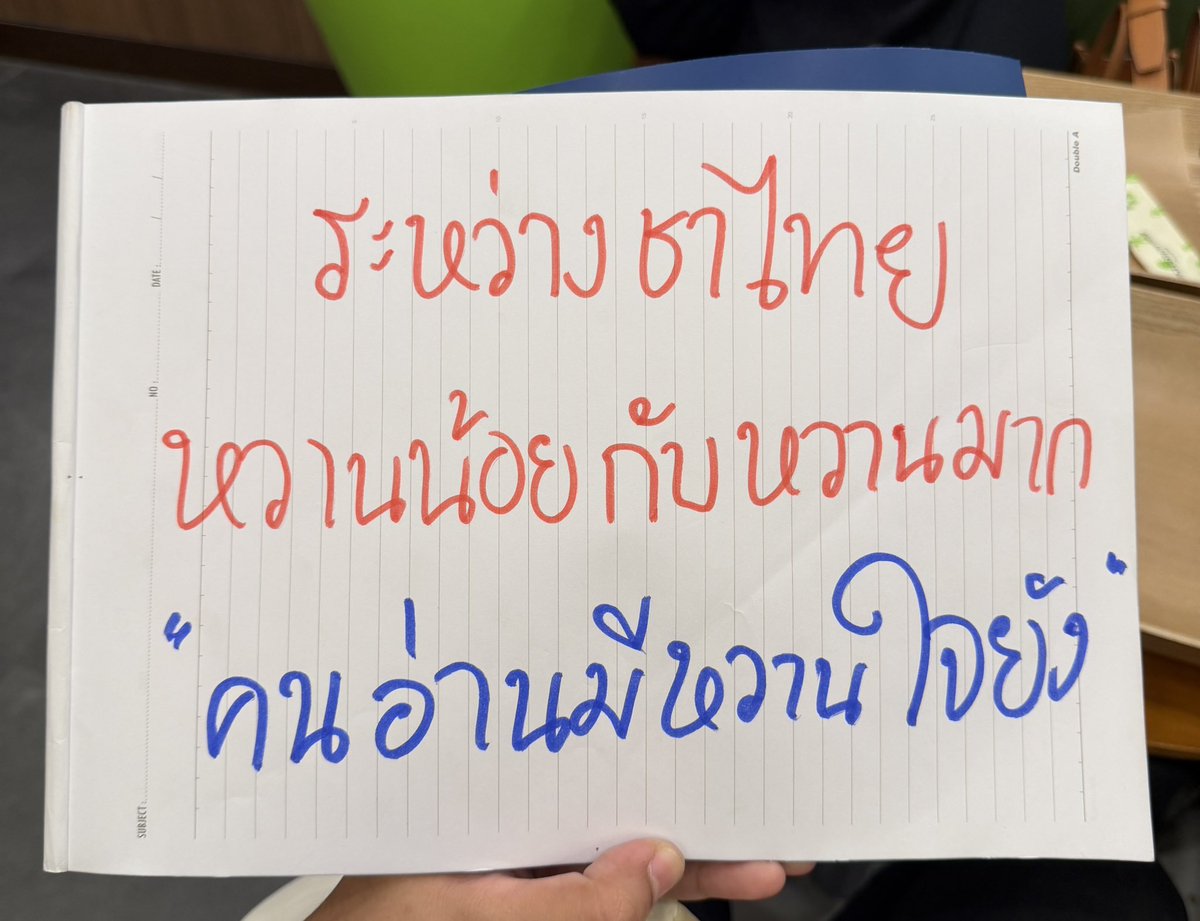 ระหว่างชาไทย
หวานน้อยกับหวานมาก
"คนอ่านมีหวานใจยัง"
Double A
DATE : / /
NO :
SUBJECT :
5 10 15 20 25